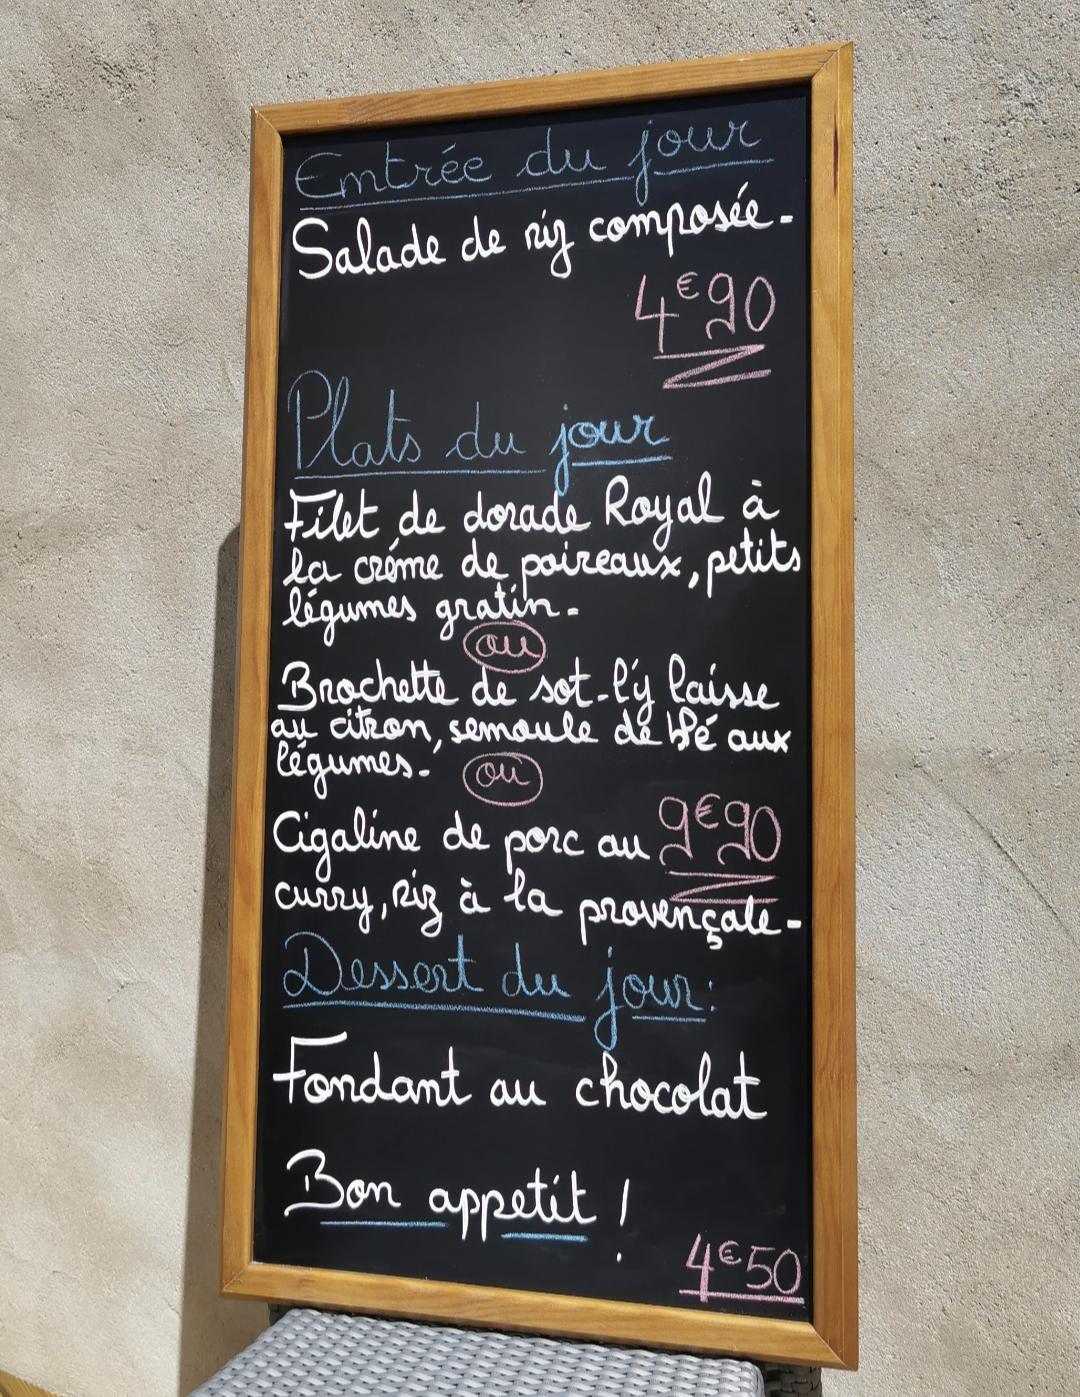 Entrée du jour
Salade de riz composée-
4€90
Plats du jour
Filet de dorade Royal à
la créme de poireaux, petits
légumes gratin-
ou
Brochette de sot-l'y laisse
au citron, semoule de blé aux
légumes-
ou
Cigaline de porc au 9€90
curry, riz à la provençale-
Dessert du jour:
Fondant au chocolat
Bon appetit !
4€50